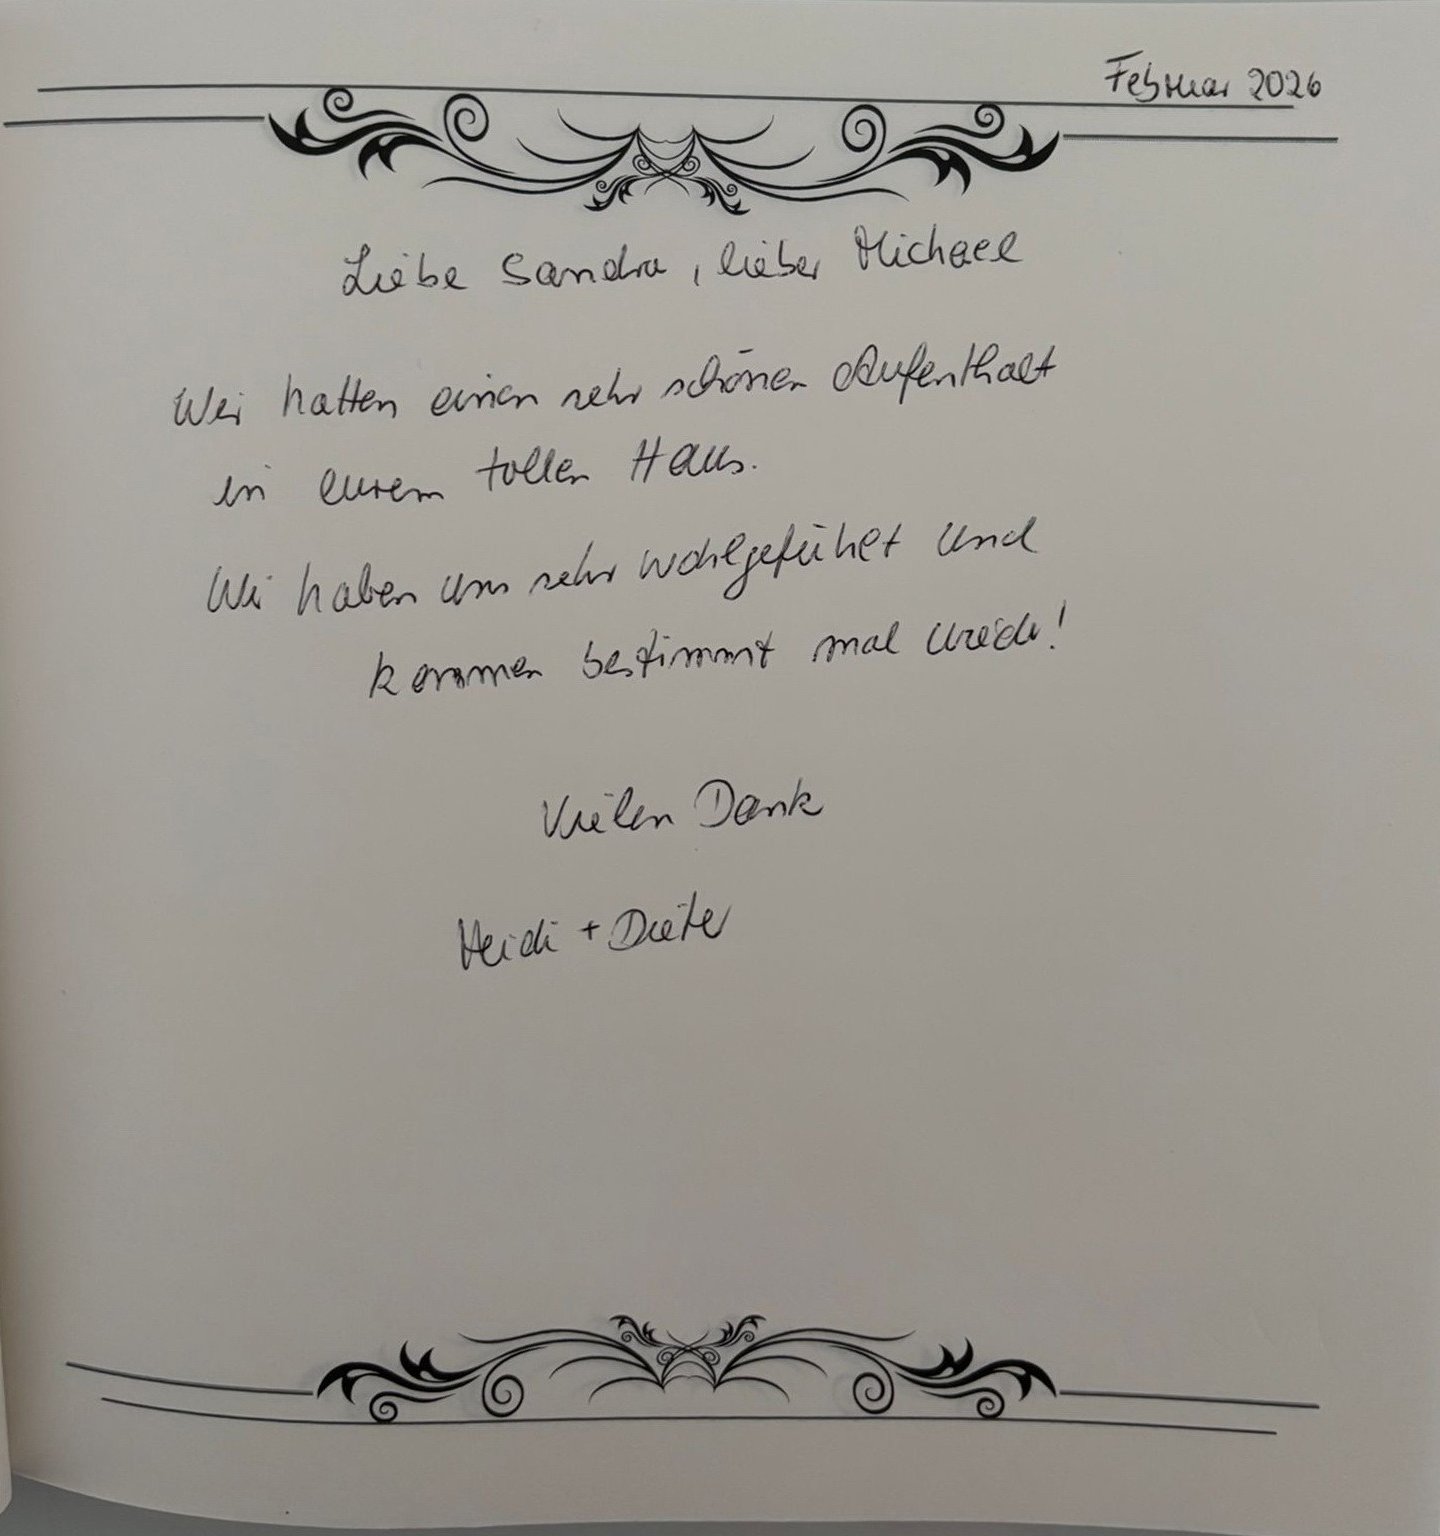 Februar 2026
Liebe Sandra, lieber Michael
Wir hatten einen sehr schönen Aufenthalt
in eurem tollen Haus.
Wir haben uns sehr wohlgefühlt und
kommen bestimmt mal wieder!
Vielen Dank
Heidi + Dieter